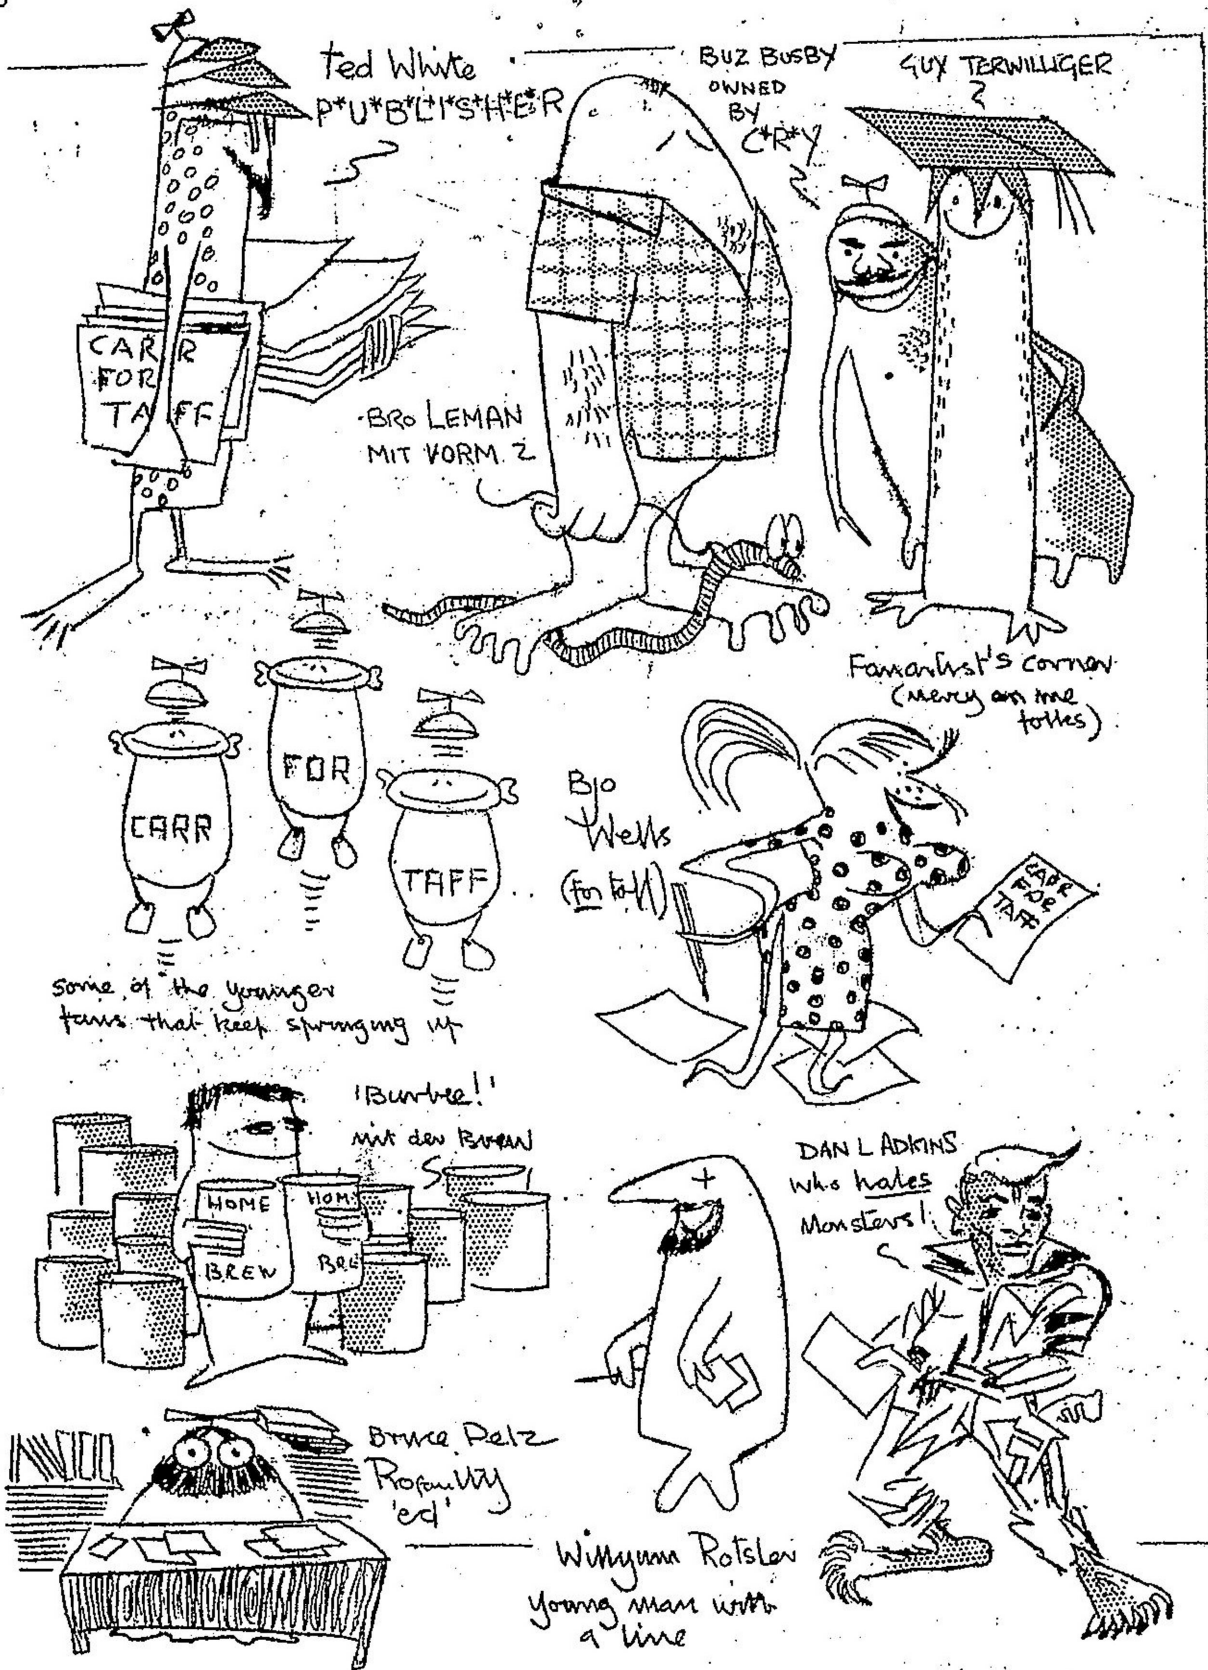 Ted White
P*U*B*L*I*S*H*E*R
BUZ BUSBY
OWNED
BY
C*R*Y
GUY TERWILLIGER
CARR
FOR
TAFF
BRO LEMAN
MIT VORM. 2
Fanartist's corner
(Mercy on me
folks)
CARR
FOR
TAFF
some of the younger
fans that keep springing up
Bjo
Wells
(for Taff)
CARR
FOR
TAFF
'Burbee!'
mit den BREW
HOME
BREW
HOM
BRE
DAN L ADKINS
who hates
Monsters!
Bruce Pelz
'ed'
Willyum Rotsler
young man with
a line